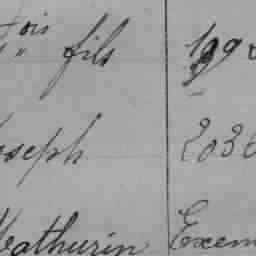 fois " fils 199
oseph 203
Mathurin Exem